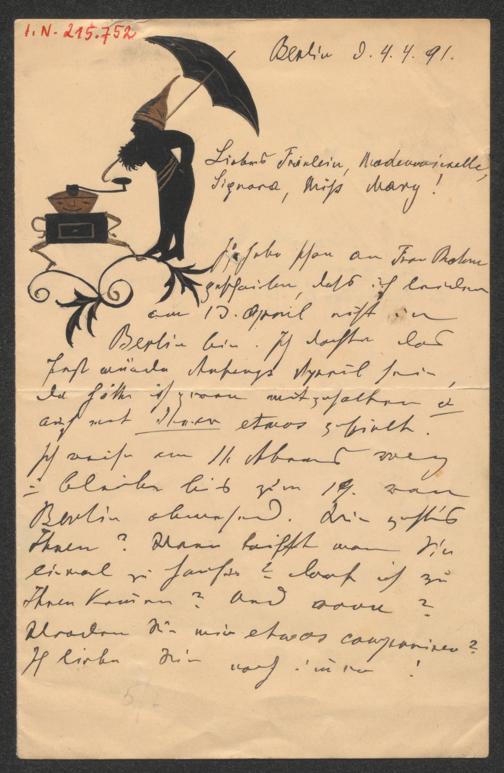 I.N. 215.752
Berlin d. 4.4.91.
Liebes Fräulein, Mademoiselle,
Signora, Miß Mary!
Ich habe schon an Frau
geschrieben, daß ich leider
am 13. April nicht in
Berlin bin. Ich dachte das
Fest würde Anfangs April sein,
da hätte ich gern mitgehalten u
auch mit Ihnen etwas gespielt.
Ich reise am 11 Abends weg
u bleibe bis zum 19. von
Berlin abwesend. Wie geht's
Ihnen? Wann trifft man Sie
einmal zu Hause? darf ich zu
Ihnen kommen? Und wann?
Werden Sie mir etwas componiren?
Ich liebe Sie noch immer!